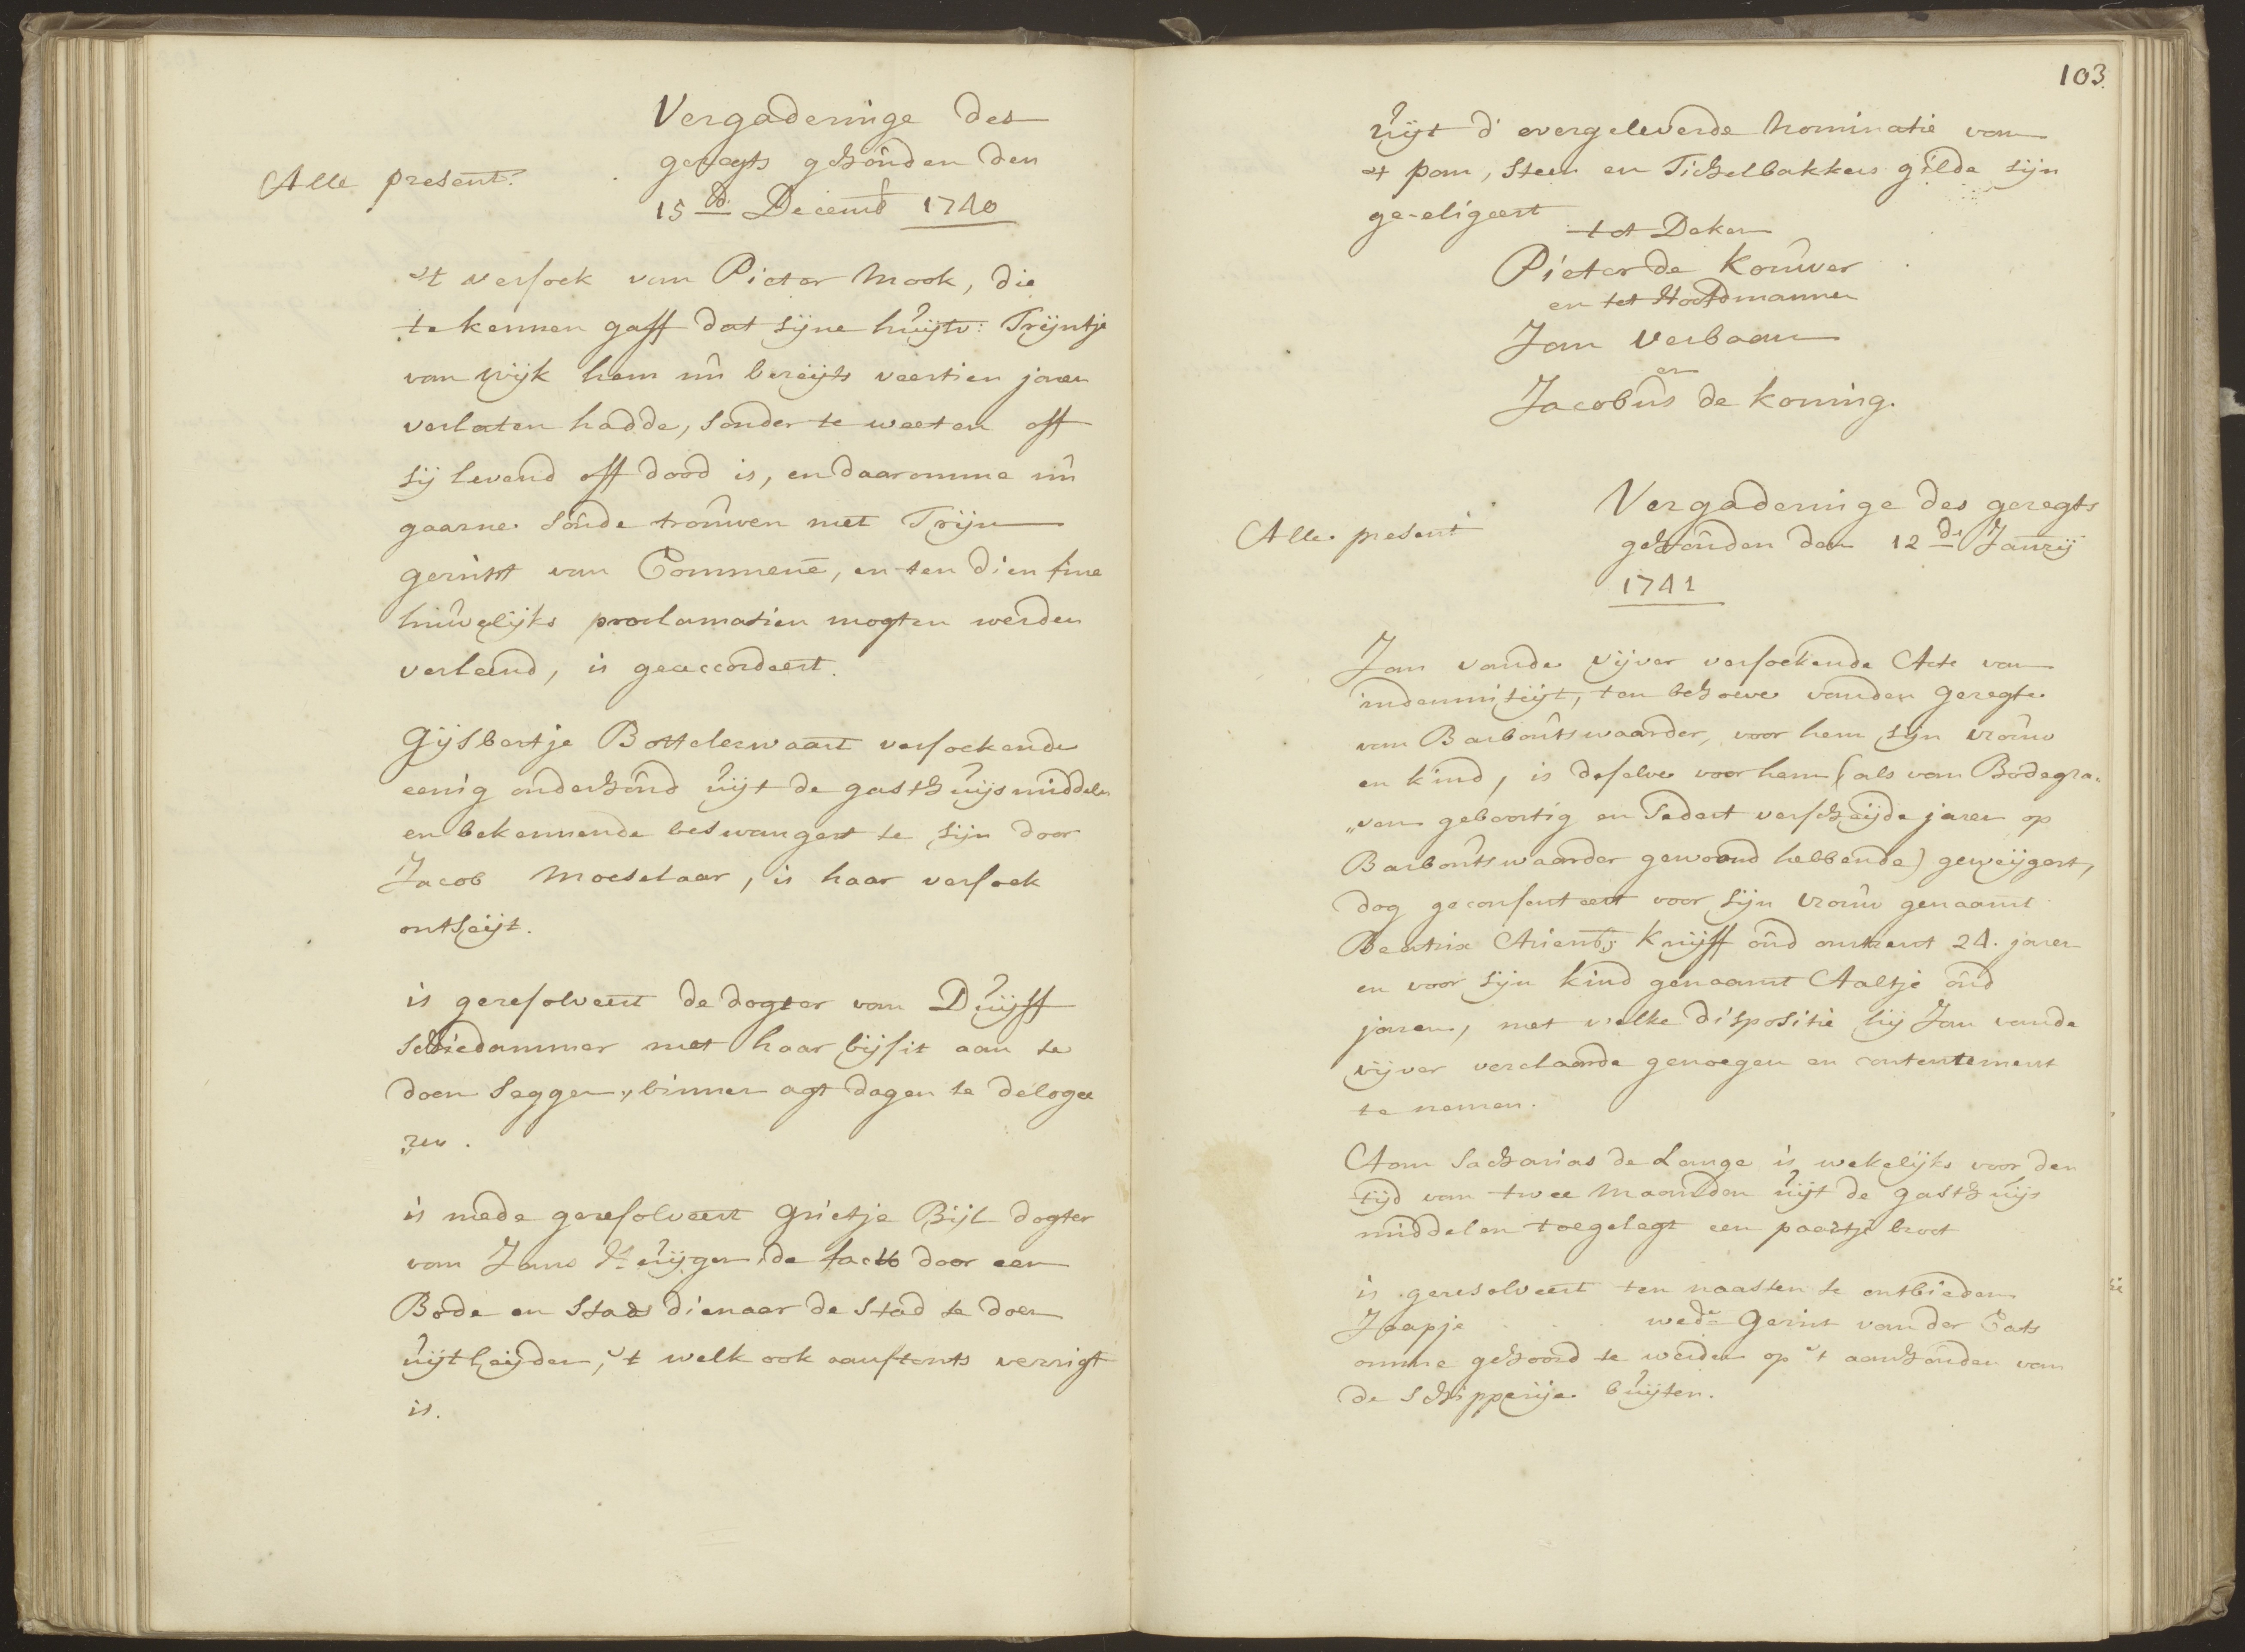 Vergaderinge des
Alle present.
geregts gehouden den
15de Decemb 1740
't versoek van Pieter Mook, die
te kennen gaff dat sijne huijsv: Trijntje
van Wijk hem nu bereijts veertien jaren
verlaten hadde, sonder te weeten off
sij levend off dood is, en daaromme nu
gaarne soude trouwen met Trijn
gerritt van Commene, en ten dien fine
huwelijks proclamatien mogten werden
verleend, is geaccordeert.
Gijsbertje Bottelerwaart versoekende
eenig onderhoud uijt de gasthuijs middelen
en bekennende beswangert te sijn door
Jacob Moeselaar, is haar versoek
ontseijt.
is geresolveert de dogter van Duijff
Schiedammer met haar bijsit aan te
doen seggen, binnen agt dagen te deloge
ren.
is mede geresolveert Grietje Bijl dogter
van Jans Huijgen de facto door een
Bode en Stads dienaar de Stad te doen
uijtleijden, 't welk ook aanstonts verrigt
is.
103.
uijt d' overgeleverde nominatie van
't pan, Steen en Tichelbakkers gilde sijn
ge-eligeert
tot Deken
Pieter de Kouwer
en tot Hooftdmannen
Jan Verbaan
en
Jacobus de Koning.
Vergaderinge des geregts
Alle present
gehouden den 12de Januarij
1741
Jan vande Vijver versoekende Acte van
indemniteijt, ten behoeve vanden Geregte
van Barboutswaarder, voor hem sijn vrouw
en kind, is deselve voor hem (als van Bodegra„
„ven geboortig en sedert verscheijde jaren op
Barboutswaarder gewoond hebbende) geweijgert,
dog geconsenteert voor sijn vrouw genaamt
Beatrix Ariens Kruijff oud omtrent 24. jaren
en voor sijn kind genaamt Aaltje oud
jaren, met welke dispositie hij Jan vande
Vijver verclaarde genoegen en contentement
te nemen.
Aan Sacharias de Lange is wekelijks voor den
tijd van twee Maanden uijt de gasthuijs
middelen toegelegt een paartje broot
is geresolveert ten naasten te ontbieden
Jaapje wede Gerrit van der Cats
omme gehoord te werden op 't aanhouden van
de Schipperije buijten.